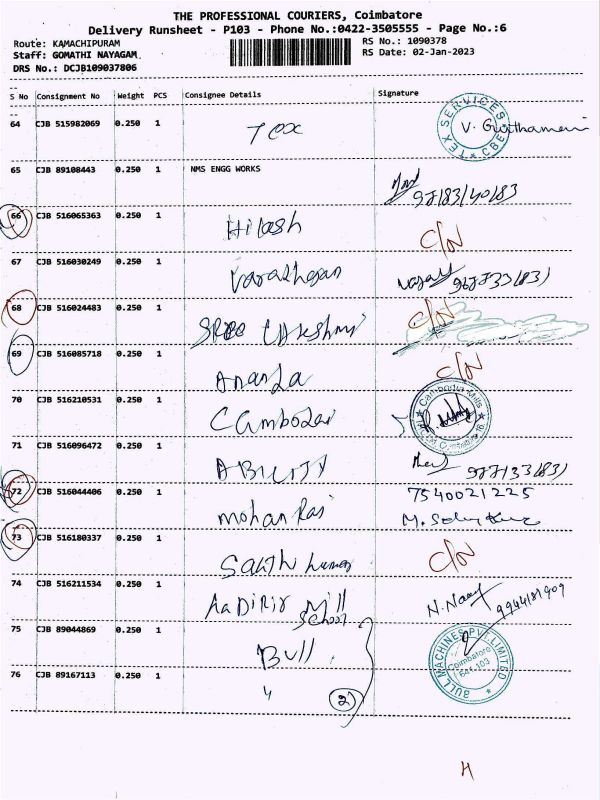 THE PROFESSIONAL COURIERS, Coimbatore
Delivery Runsheet - P103 - Phone No.:0422-3505555 - Page No.:6
Route: KAMACHIPURAM
Staff: GOMATHI NAYAGAM
DRS No.: DCJB109037806
RS No.: 1090378
RS Date: 02-Jan-2023
S No Consignment No Weight PCS Consignee Details Signature
64 CJB 515982069 0.250 1 TEX V.
TEX SERVICES CBE
65 CJB 89108443 0.250 1 NMS ENGG WORKS
66 CJB 516065363 0.250 1 Hilash C/N
67 CJB 516030249 0.250 1
68 CJB 516024483 0.250 1 SREE LAkshmi C/N
69 CJB 516085718 0.250 1 Ananda C/N
70 CJB 516210531 0.250 1 Cambodia
Cambodia Mills
71 CJB 516096472 0.250 1 ABILITY
72 CJB 516044406 0.250 1 mohan Raj 7540021225
73 CJB 516180337 0.250 1 C/N
74 CJB 516211534 0.250 1 Mill School
75 CJB 89044869 0.250 1 Bull
BULL MACHINES PVT LIMITED
Coimbatore
641 103
76 CJB 89167113 0.250 1 " 2